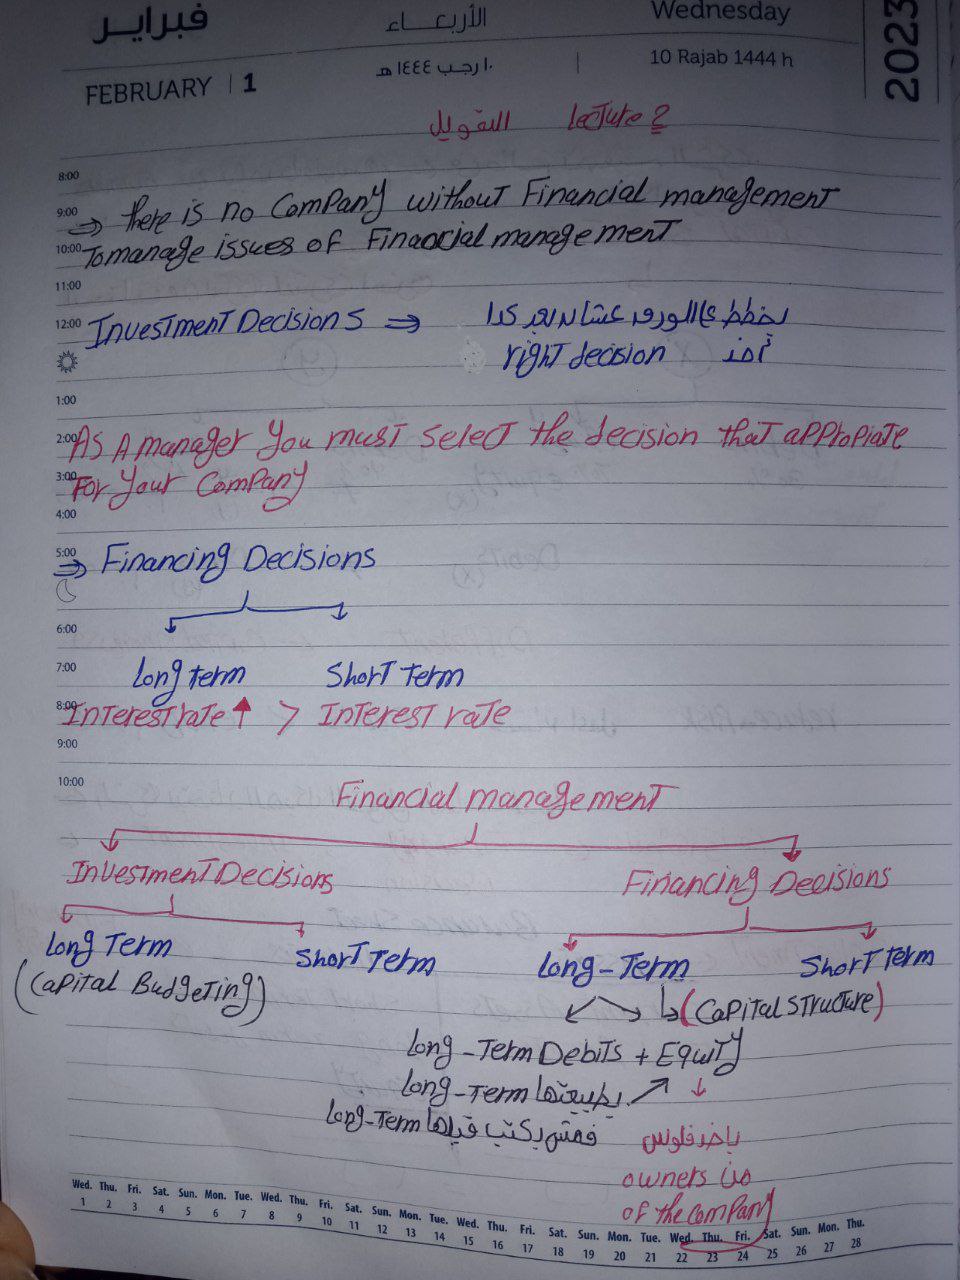 فبراير الأربعاء Wednesday 2023
FEBRUARY 1 ١٠ رجب ١٤٤٤ هـ 10 Rajab 1444 h
التمويل Lecture 2
8:00
9:00 ⇒ there is no Company without Financial management
10:00 To manage issues of Financial management
11:00
12:00 Investment Decisions ⇒ يخطط ع الورق عشان بعد كدا
right decision آخد
1:00
2:00 As A manager you must select the decision that appropiate
3:00 For your Company
4:00
5:00 ⇒ Financing Decisions
6:00
7:00 Long term Short term
8:00 Interest rate ↑ > Interest rate
9:00
10:00 Financial management
Investment Decisions Financing Decisions
Long Term Short Term Long-Term Short Term
(Capital Budgeting) (Capital Structure)
Long-Term Debits + Equity
Long-Term بطبيعتها
Long-Term فمش بكتب قبلها
باخد فلوس
owners من
of the company
Wed. Thu. Fri. Sat. Sun. Mon. Tue. Wed. Thu. Fri. Sat. Sun. Mon. Tue. Wed. Thu. Fri. Sat. Sun. Mon. Tue. Wed. Thu. Fri. Sat. Sun. Mon. Thu.
1 2 3 4 5 6 7 8 9 10 11 12 13 14 15 16 17 18 19 20 21 22 23 24 25 26 27 28